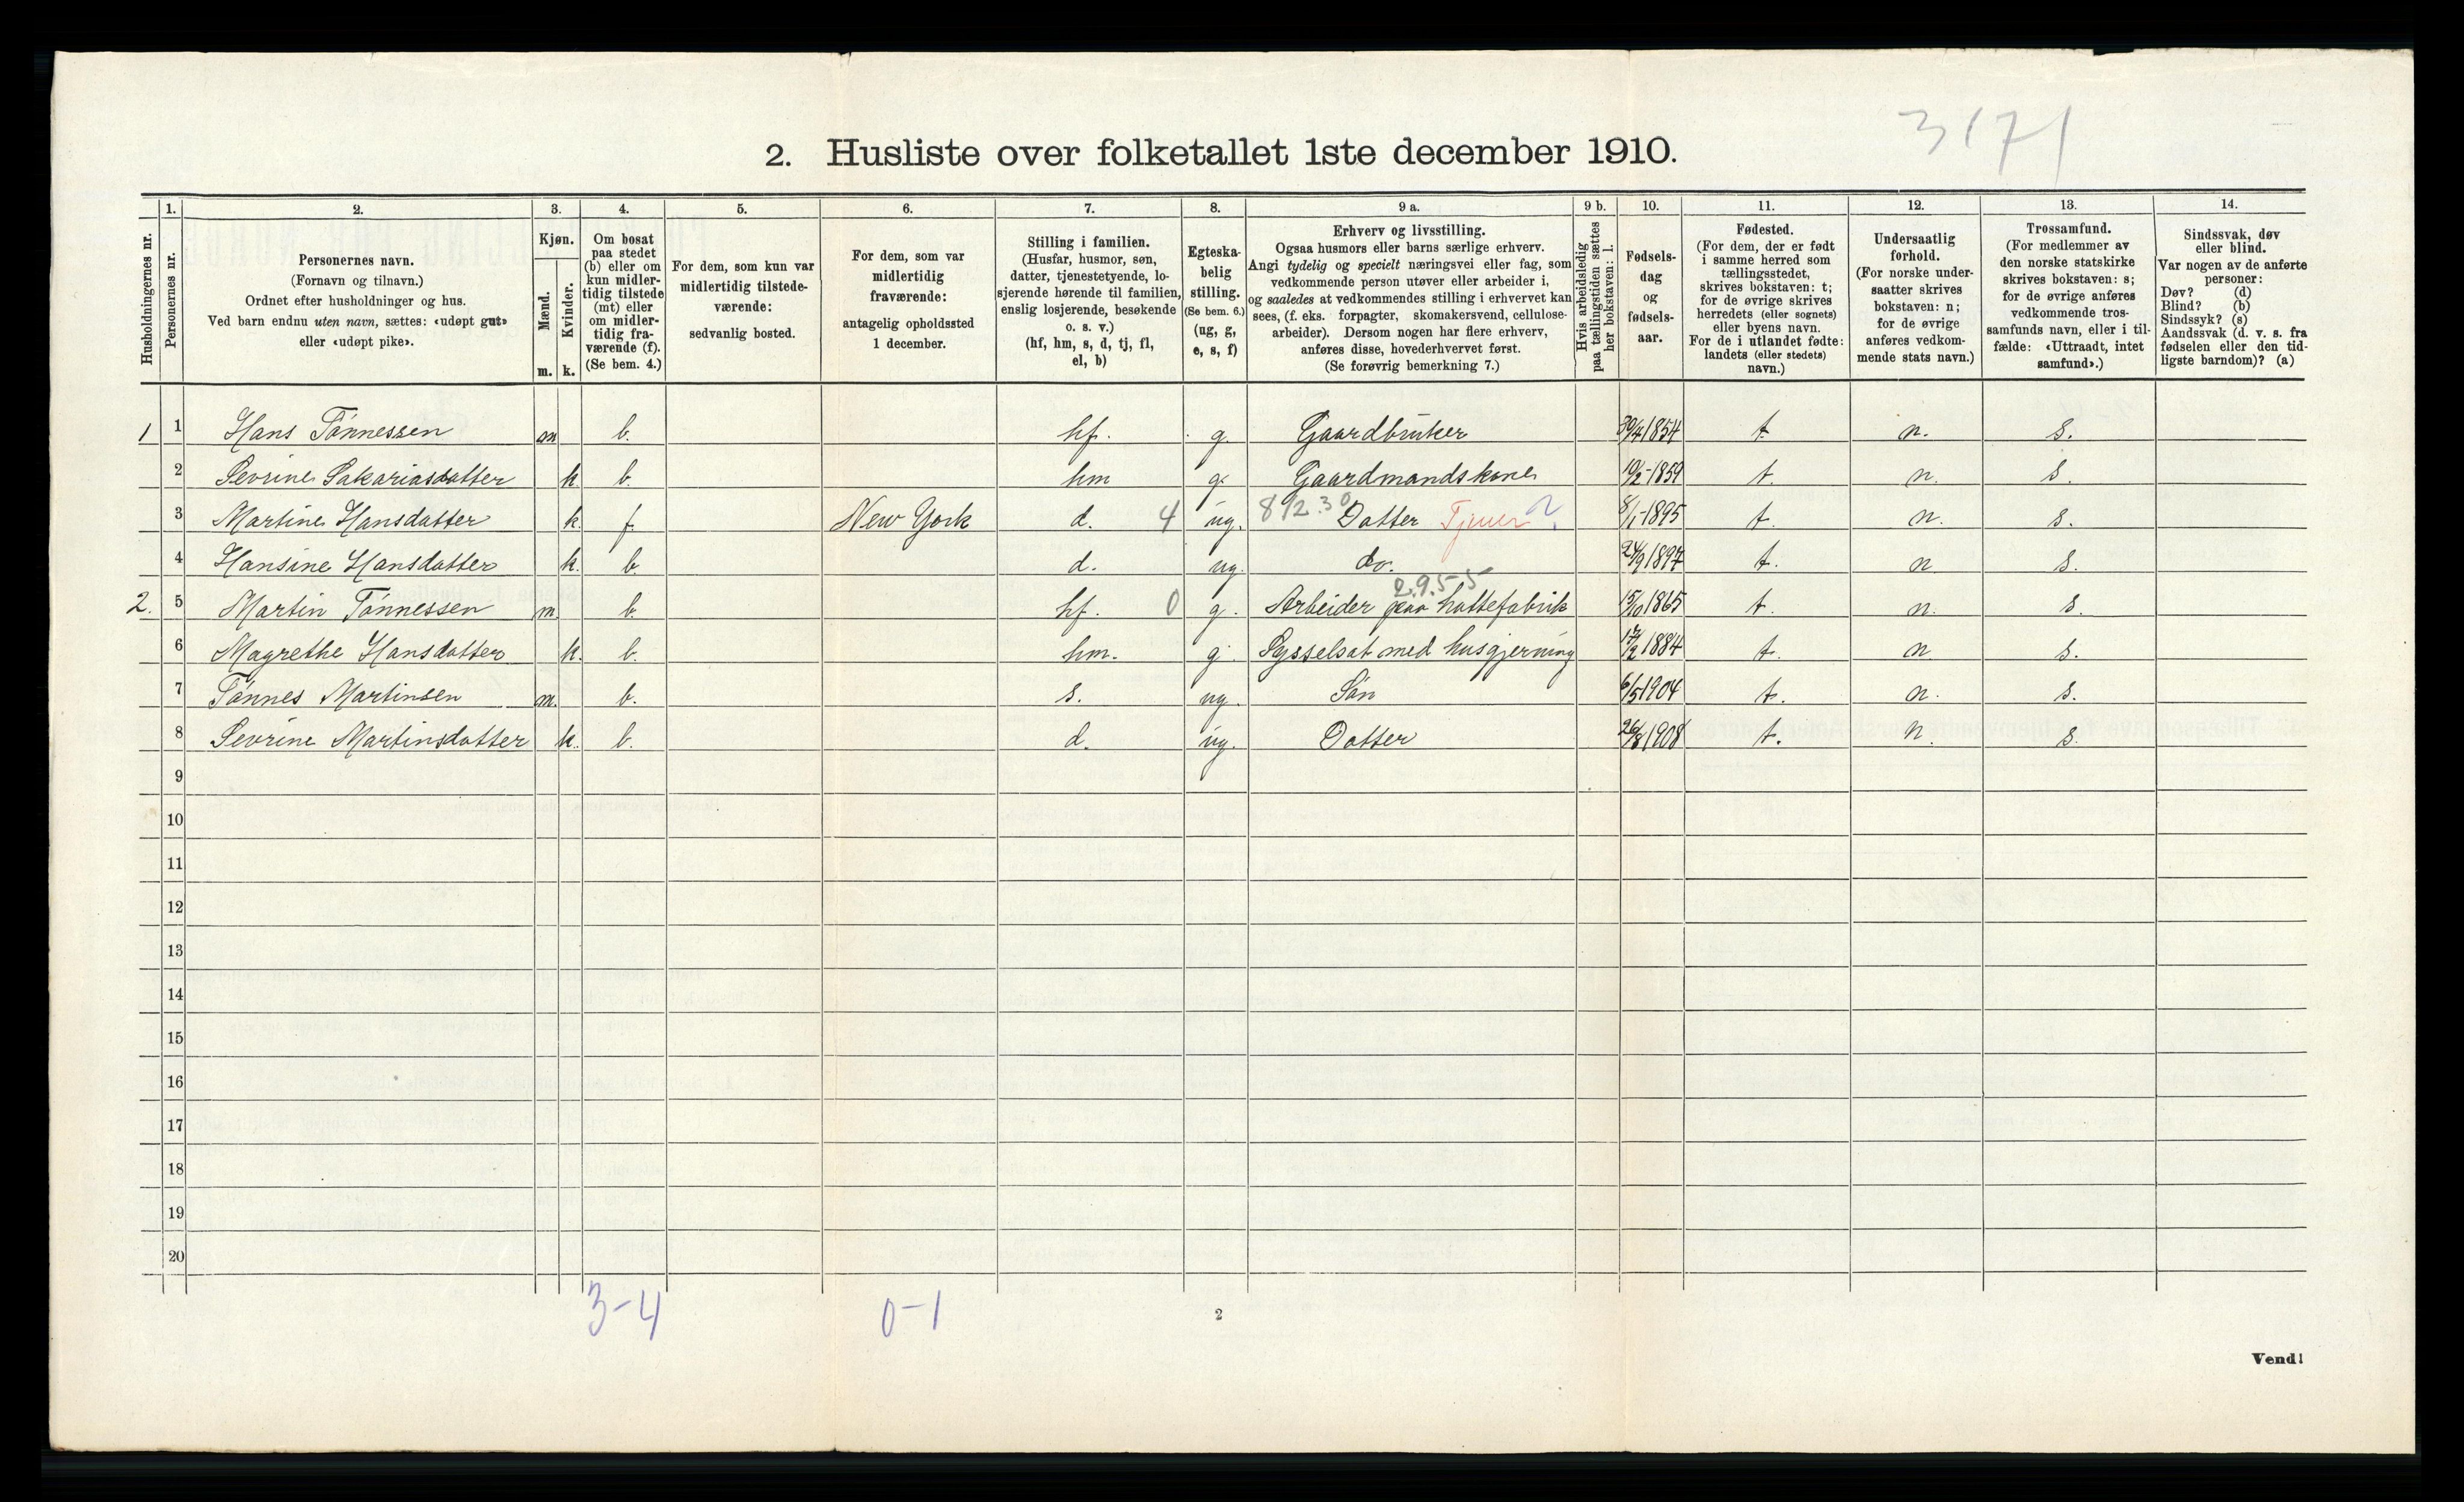 3171
2. Husliste over folketallet 1ste december 1910.
Husholdningernes nr.
1.
Personernes nr.
2.
Personernes navn.
(Fornavn og tilnavn.)
Ordnet efter husholdninger og hus.
Ved barn endnu uten navn, sættes: «udøpt gut»
eller «udøpt pike».
3.
Kjøn.
Mænd.
Kvinder.
m. k.
4.
Om bosat
paa stedet
(b) eller om
kun midler-
tidig tilstede
(mt) eller
om midler-
tidig fra-
værende (f).
(Se bem. 4.)
5.
For dem, som kun var
midlertidig tilstede-
værende:
sedvanlig bosted.
6.
For dem, som var
midlertidig
fraværende:
antagelig opholdssted
1 december.
7.
Stilling i familien.
(Husfar, husmor, søn,
datter, tjenestetyende, lo-
sjerende hørende til familien,
enslig losjerende, besøkende
o. s. v.)
(hf, hm, s, d, tj, fl,
el, b)
8.
Egteska-
belig
stilling.
(Se bem. 6.)
(ug, g,
e, s, f)
9 a.
Erhverv og livsstilling.
Ogsaa husmors eller barns særlige erhverv.
Angi tydelig og specielt næringsvei eller fag, som
vedkommende person utøver eller arbeider i,
og saaledes at vedkommendes stilling i erhvervet kan
sees, (f. eks. forpagter, skomakersvend, cellulose-
arbeider). Dersom nogen har flere erhverv,
anføres disse, hovederhvervet først.
(Se forøvrig bemerkning 7.)
9 b.
Hvis arbeidsledig
paa tællingstiden sættes
her bokstaven: l.
10.
Fødsels-
dag
og
fødsels-
aar.
11.
Fødested.
(For dem, der er født
i samme herred som
tællingsstedet,
skrives bokstaven: t;
for de øvrige skrives
herredets (eller sognets)
eller byens navn.
For de i utlandet fødte:
landets (eller stedets)
navn.)
12.
Undersaatlig
forhold.
(For norske under-
saatter skrives
bokstaven: n;
for de øvrige
anføres vedkom-
mende stats navn.)
13.
Trossamfund.
(For medlemmer av
den norske statskirke
skrives bokstaven: s;
for de øvrige anføres
vedkommende tros-
samfunds navn, eller i til-
fælde: «Uttraadt, intet
samfund».)
14.
Sindssvak, døv
eller blind.
Var nogen av de anførte
personer:
Døv? (d)
Blind? (b)
Sindssyk? (s)
Aandssvak (d. v. s. fra
fødselen eller den tid-
ligste barndom)? (a)
1 1 Hans Tønnessen m b. hf. g. Gaardbruker 30/4 1854 t. n. s.
2 Sevrine Sakariasdatter k b. hm g. Gaardmandskone 10/2-1859 t. n. s.
3 Martine Hansdatter k. f. New York d. 4 ug. 892.30 Datter Tjener ? 8/1-1895 t. n. s.
4 Hansine Hansdatter k. b. d. ug. do. 24/9 1897 t. n. s.
2.955
2. 5 Martin Tønnessen m. b. hf. 0 g. Arbeider paa hattefabrik 15/10 1865 t. n. s.
6 Magrethe Hansdatter k. b. hm. g. Sysselsat med husgjerning 17/2 1884 t. n. s.
7 Tønnes Martinsen m. b. s. ug. Søn 6/5 1904 t. n. s.
8 Sevrine Martinsdatter k. b. d. ug. Datter 26/8 1908 t. n. s.
9
10
11
12
13
14
15
16
17
18
19
20
3-4 0-1
2
Vend!